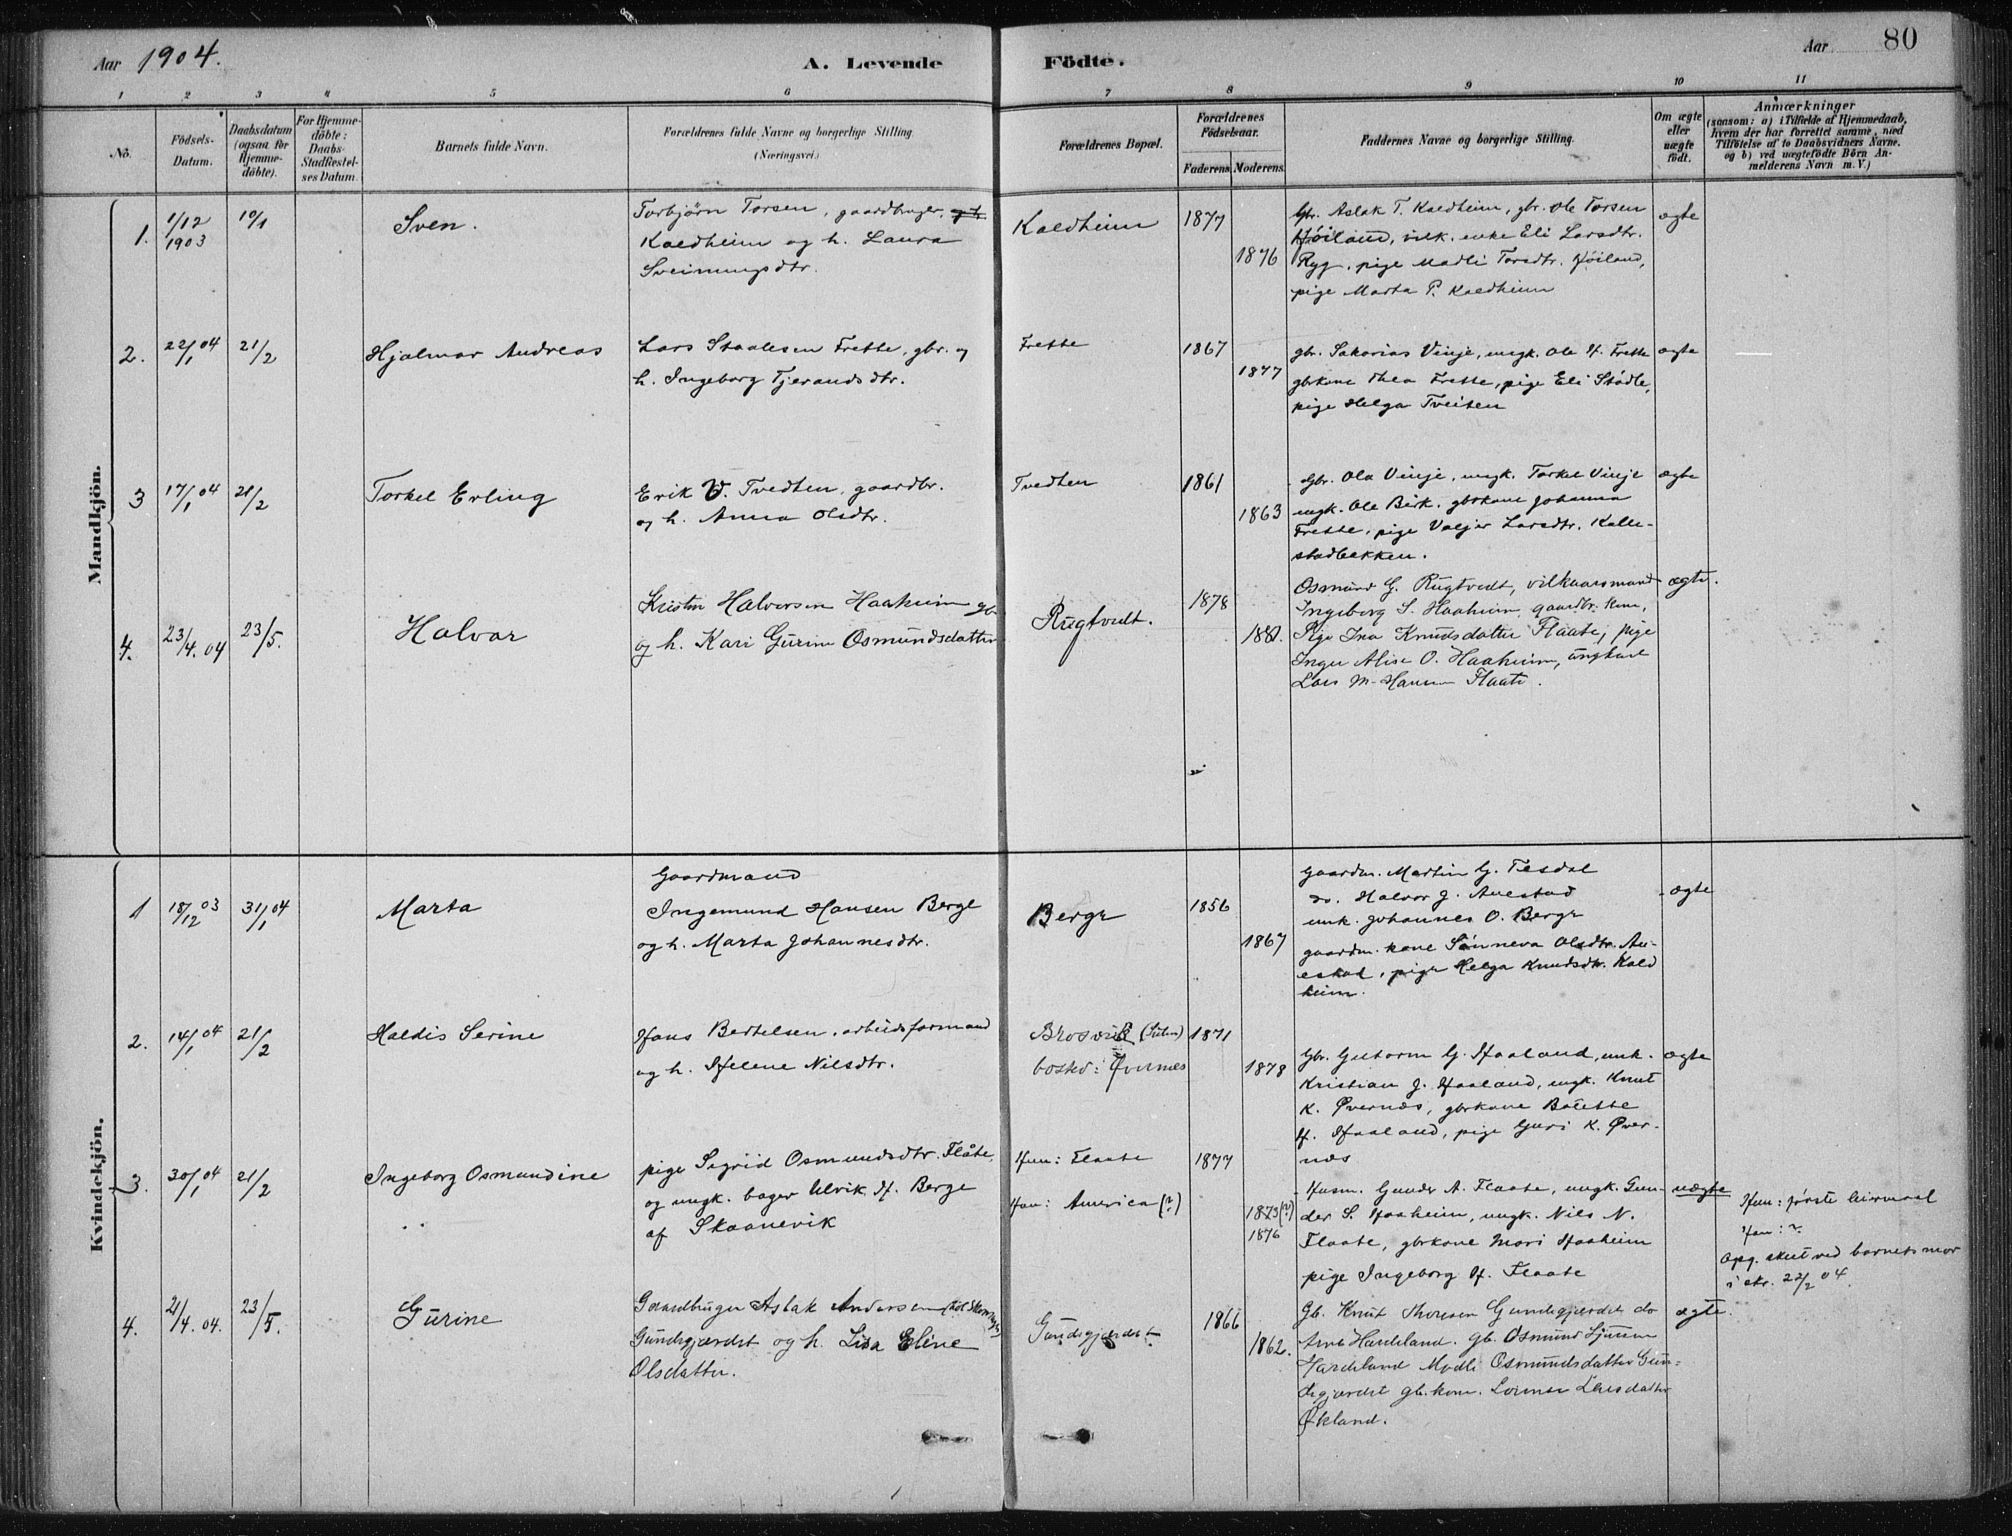 Aar 1904.
A. Levende Födte.
Aar 80
1 2 3 4 5 6 7 8 9 10 11
No.
Födsels-
Datum.
Daabsdatum
(ogsaa for
Hjemme-
döbte).
For Hjemme-
döbte:
Daabs-
Stadfæstel-
ses Datum.
Barnets fulde Navn.
Forældrenes fulde Navne og borgerlige Stilling
(Næringsvei.)
Forældrenes Bopæl.
Forældrenes
Födselsaar.
Faderens. Moderens.
Faddernes Navne og borgerlige Stilling.
Om ægte
eller
uægte
födt.
Anmærkninger
(saasom: a) i Tilfælde af Hjemmedaab,
hvem der har forrettet samme, med
Tilföielse af to Daabsvidners Navne.
og b) ved uægtefödte Börn An-
melderens Navn m. V.)
Mandkjön.
1.
1/12
1903
10/1
Sven.
Torbjørn Torsen, gaardbruger,
Kaldheim og h. Laura
Sveinungsdtr.
Kaldheim
1877
1876
Gbr. Aslak T. Kaldheim, gbr. Ole Torsen
Høiland, vilk. enke Eli Larsdtr.
Ryg, pige Madli Torsdtr. Høiland,
pige Marta P. Kaldheim
ægte
2.
22/1 04
21/2
Hjalmar Andreas
Lars Staalesen Frette, gbr. og
h. Ingeborg Tjerandsdtr.
Frette
1867
1877
gbr. Sakarias Vinje, ungk. Ole H. Frette
gbrkone Thea Frette, pige Eli Stødle,
pige Helga Tveiten
ægte
3
17/1 04
21/2
Torkel Erling
Erik V. Tvedten, gaardbr.
og h. Anna Olsdtr.
Tvedten
1861
1863
Gbr. Ola Vinje, ungk. Torkel Vinje
ungk. Ole Birk, gbrkone Johanna
Frette, pige Valjer Larsdtr. Kalle-
stadbekken.
ægte
4.
23/4. 04
23/5.
Halvar
Halvorsen Haaheim gb.
og h. Kari Gurine Osmundsdatter
Rugtvedt.
1878
Osmund G. Rugtvedt, vilkaarsmand
Ingeborg S. Haaheim, gaardbr. kone,
Pige Ina Knudsdatter Flaate, pige
Inger Alise O. Haaheim, ungkarl
Lars M. Hansen Flaate.
ægte.
Kvindekjön.
1
18/12 03
31/1 04
Marta
Gaardmand
Ingemund Hansen Berge
og h. Marta Johannesdtr.
Berge
1856
1867
Gaardm. Martin G. Tesdal
do. Halvor J. Auestad
unk. Johannes O. Berge
gaardm. kone Sønneva Olsdtr. Au-
estad, pige Helga Knudsdtr. Kald
heim.
ægte
2.
14/1 04
21/2
Haldis Serine
Hans Bertelsen, arbeidsformand
og h. Helene Nilsdtr.
Brosvik
bosted: Øvernes
1871
1878
Gbr. Gutorm G. Haaland, unk.
Kristian J. Haaland, ungk. Knut
K. Øvernæs, gbrkone Bolette
H. Haaland, pige Guri K. Øver-
næs
ægte
3.
30/1 04
21/2
Ingeborg Osmundine
pige Sigrid Osmundsdtr. Flåte,
og ungk. bager Ulvik H. Berge
af Skaanevik
Hun: Flaate
Han: America (?)
1877
1873 (?)
1876
Husm. Gunder A. Flaate, ungk. Gun-
der S. Haaheim, ungk. Nils N.
Flaate, gbrkone Mari Haaheim
pige Ingeborg H. Flaate
uægte
Hun: første leiermaal
Han: ?
Opg. skut ved barnets mor
22/2 04.
4.
21/4. 04.
23/5.
Gurine
Gaardbruger Aslak Andersen
Gundegjærdet og h. Lisa Eline
Olsdatter.
Gundegjærdet
1866
1862.
Gb. Knut Thoresen Gundegjærdet do
Arne Hardeland. gb. Osmund
Hardeland Madli Osmundsdatter Gun-
degjærdet gb. kone. Larsdatter
Økland.
ægte.